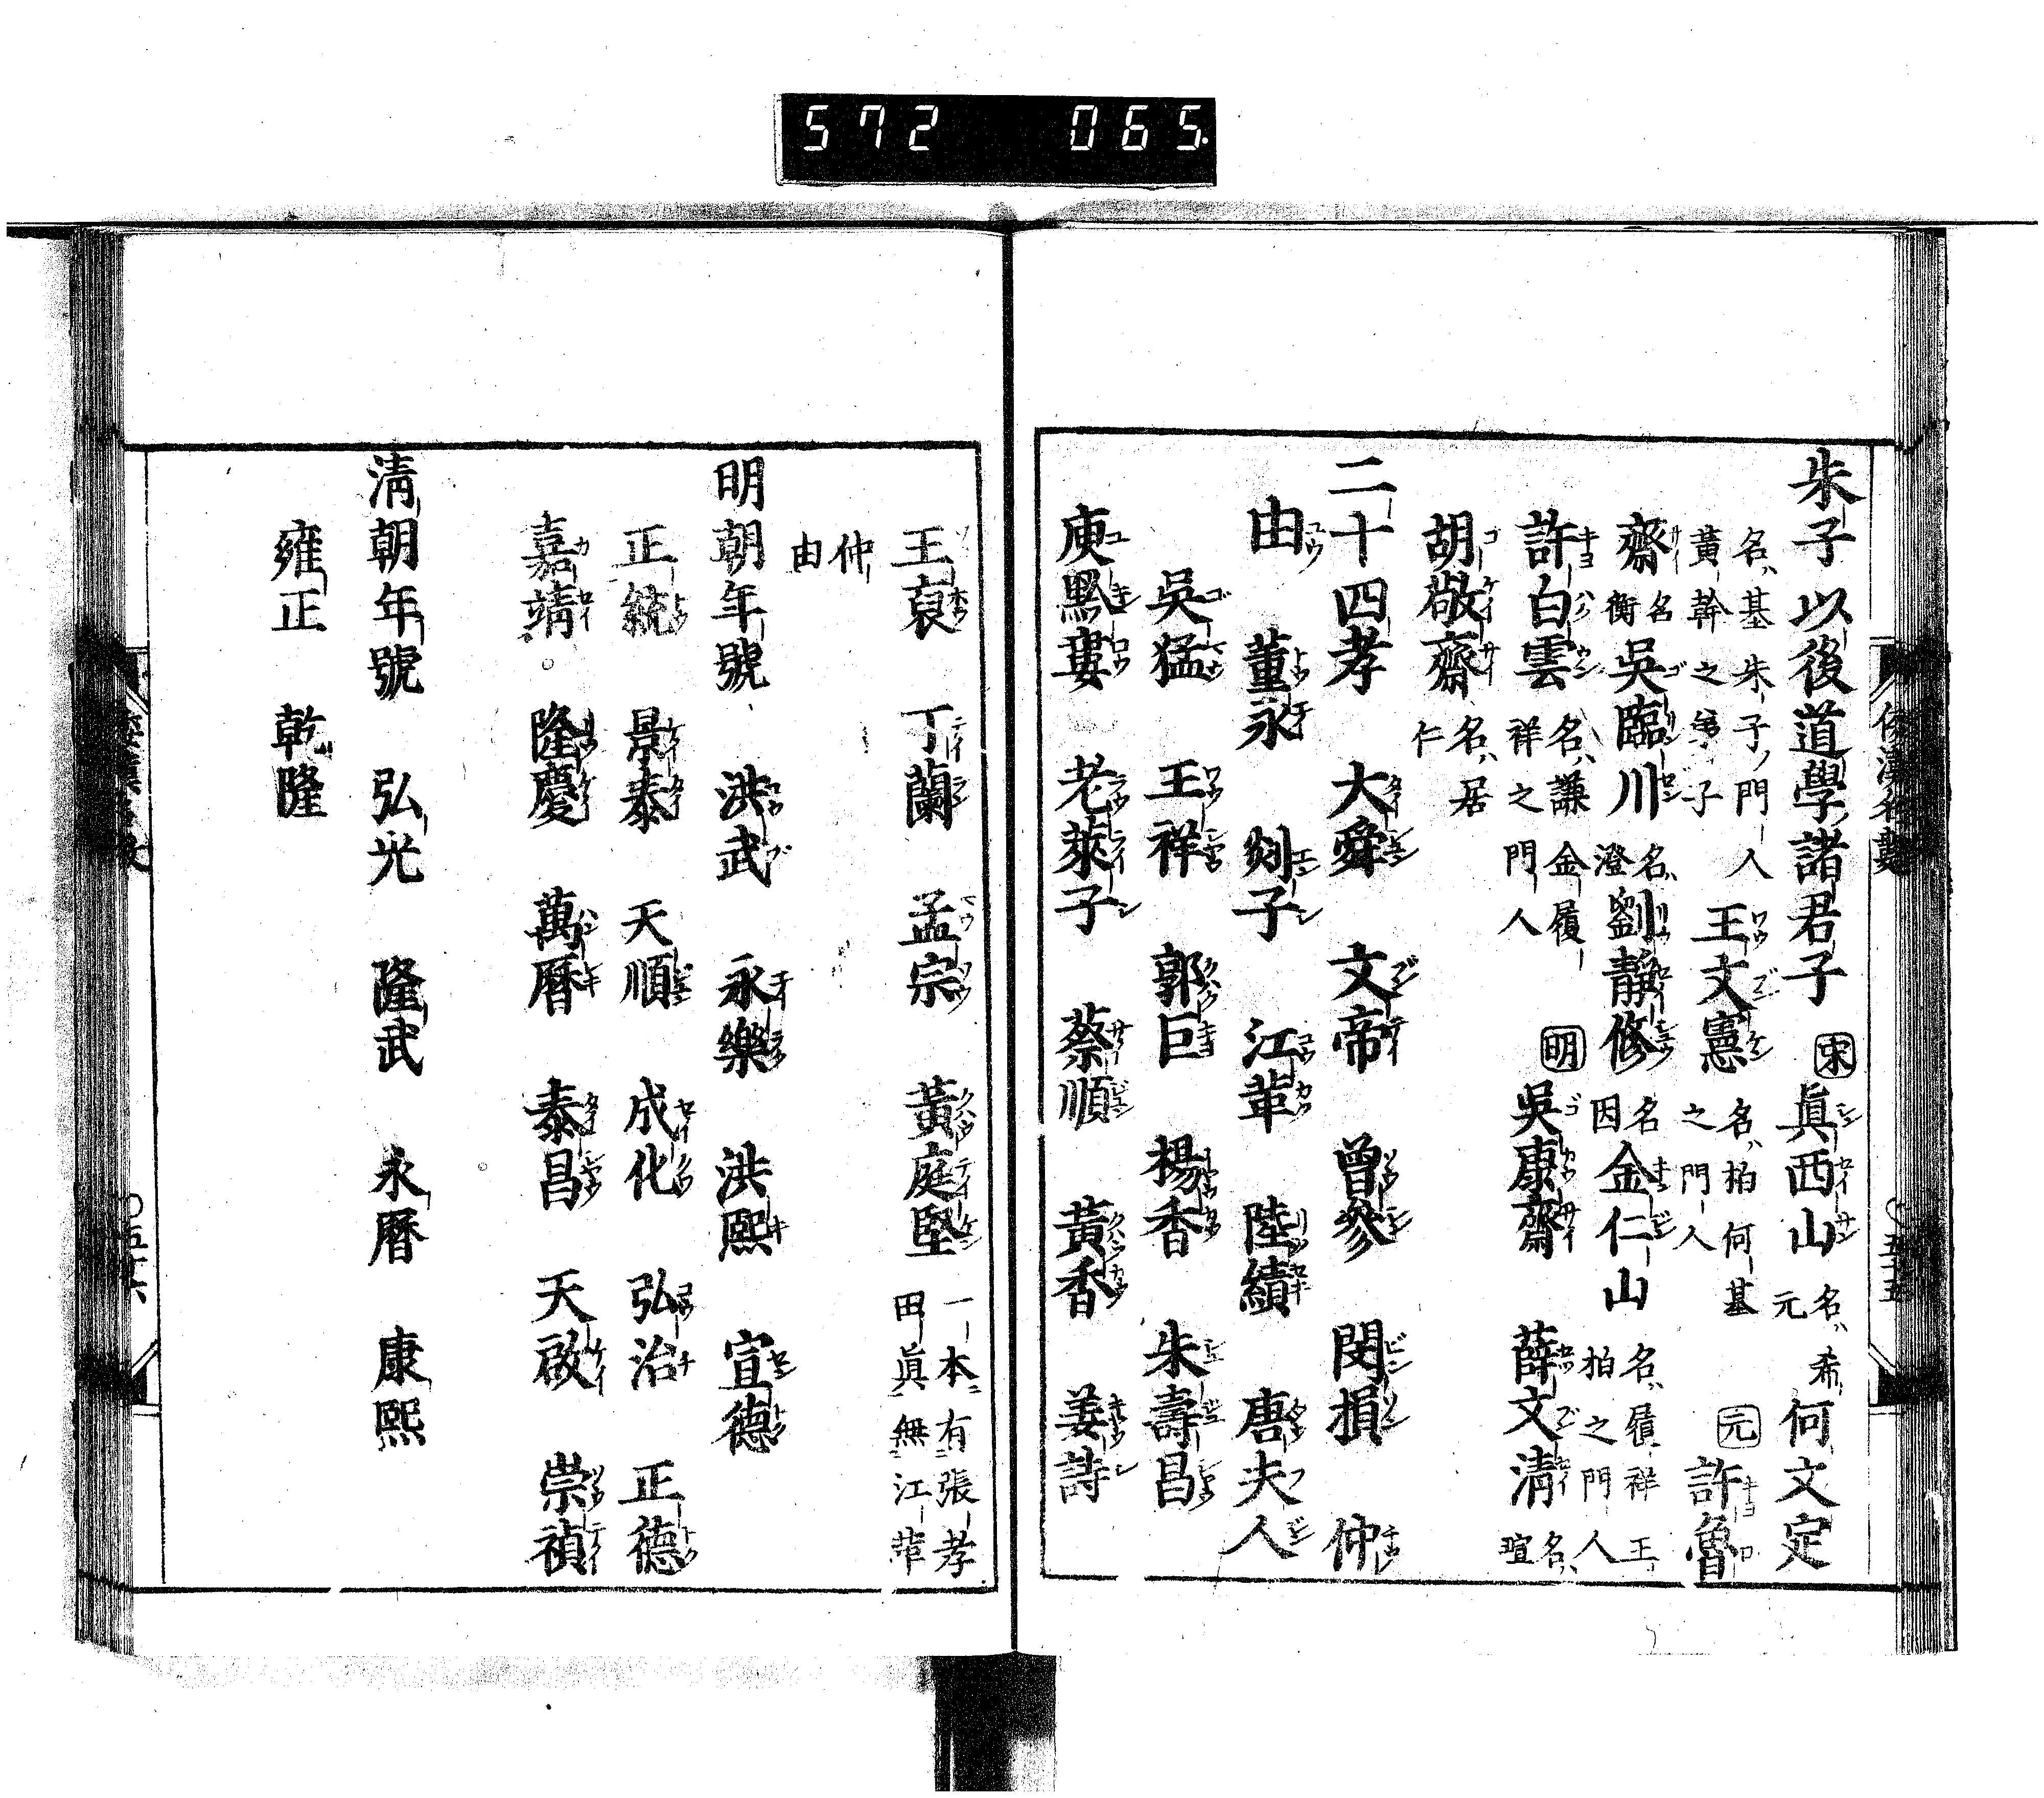 572 065
朱子以後道學諸君子 宋 眞西山 名ハ希元 何文定
名ハ基朱子ノ門人黃榦之弟子 王文憲 名ハ柏何基之門人 元 許魯
齋 名衡 吳臨川 名ハ澄 劉靜修 名因 金仁山 名ハ履祥王柏之門人
許白雲 名ハ謙金履祥之門人 明 吳康齋 薛文清 名ハ瑄
胡敬齋 名ハ居仁
二十四孝 大舜 文帝 曾參 閔損 仲
由 董永 剡子 江革 陸績 唐夫人
吳猛 王祥 郭巨 楊香 朱壽昌
庾黔婁 老萊子 蔡順 黃香 姜詩
五十五
王裒 丁蘭 孟宗 黃庭堅 一本ニ有張孝田眞無江革
仲由
明朝年號 洪武 永樂 洪熙 宣德
正統 景泰 天順 成化 弘治 正德
嘉靖 隆慶 萬曆 泰昌 天啟 崇禎
清朝年號 弘光 隆武 永曆 康熙
雍正 乾隆
五十六